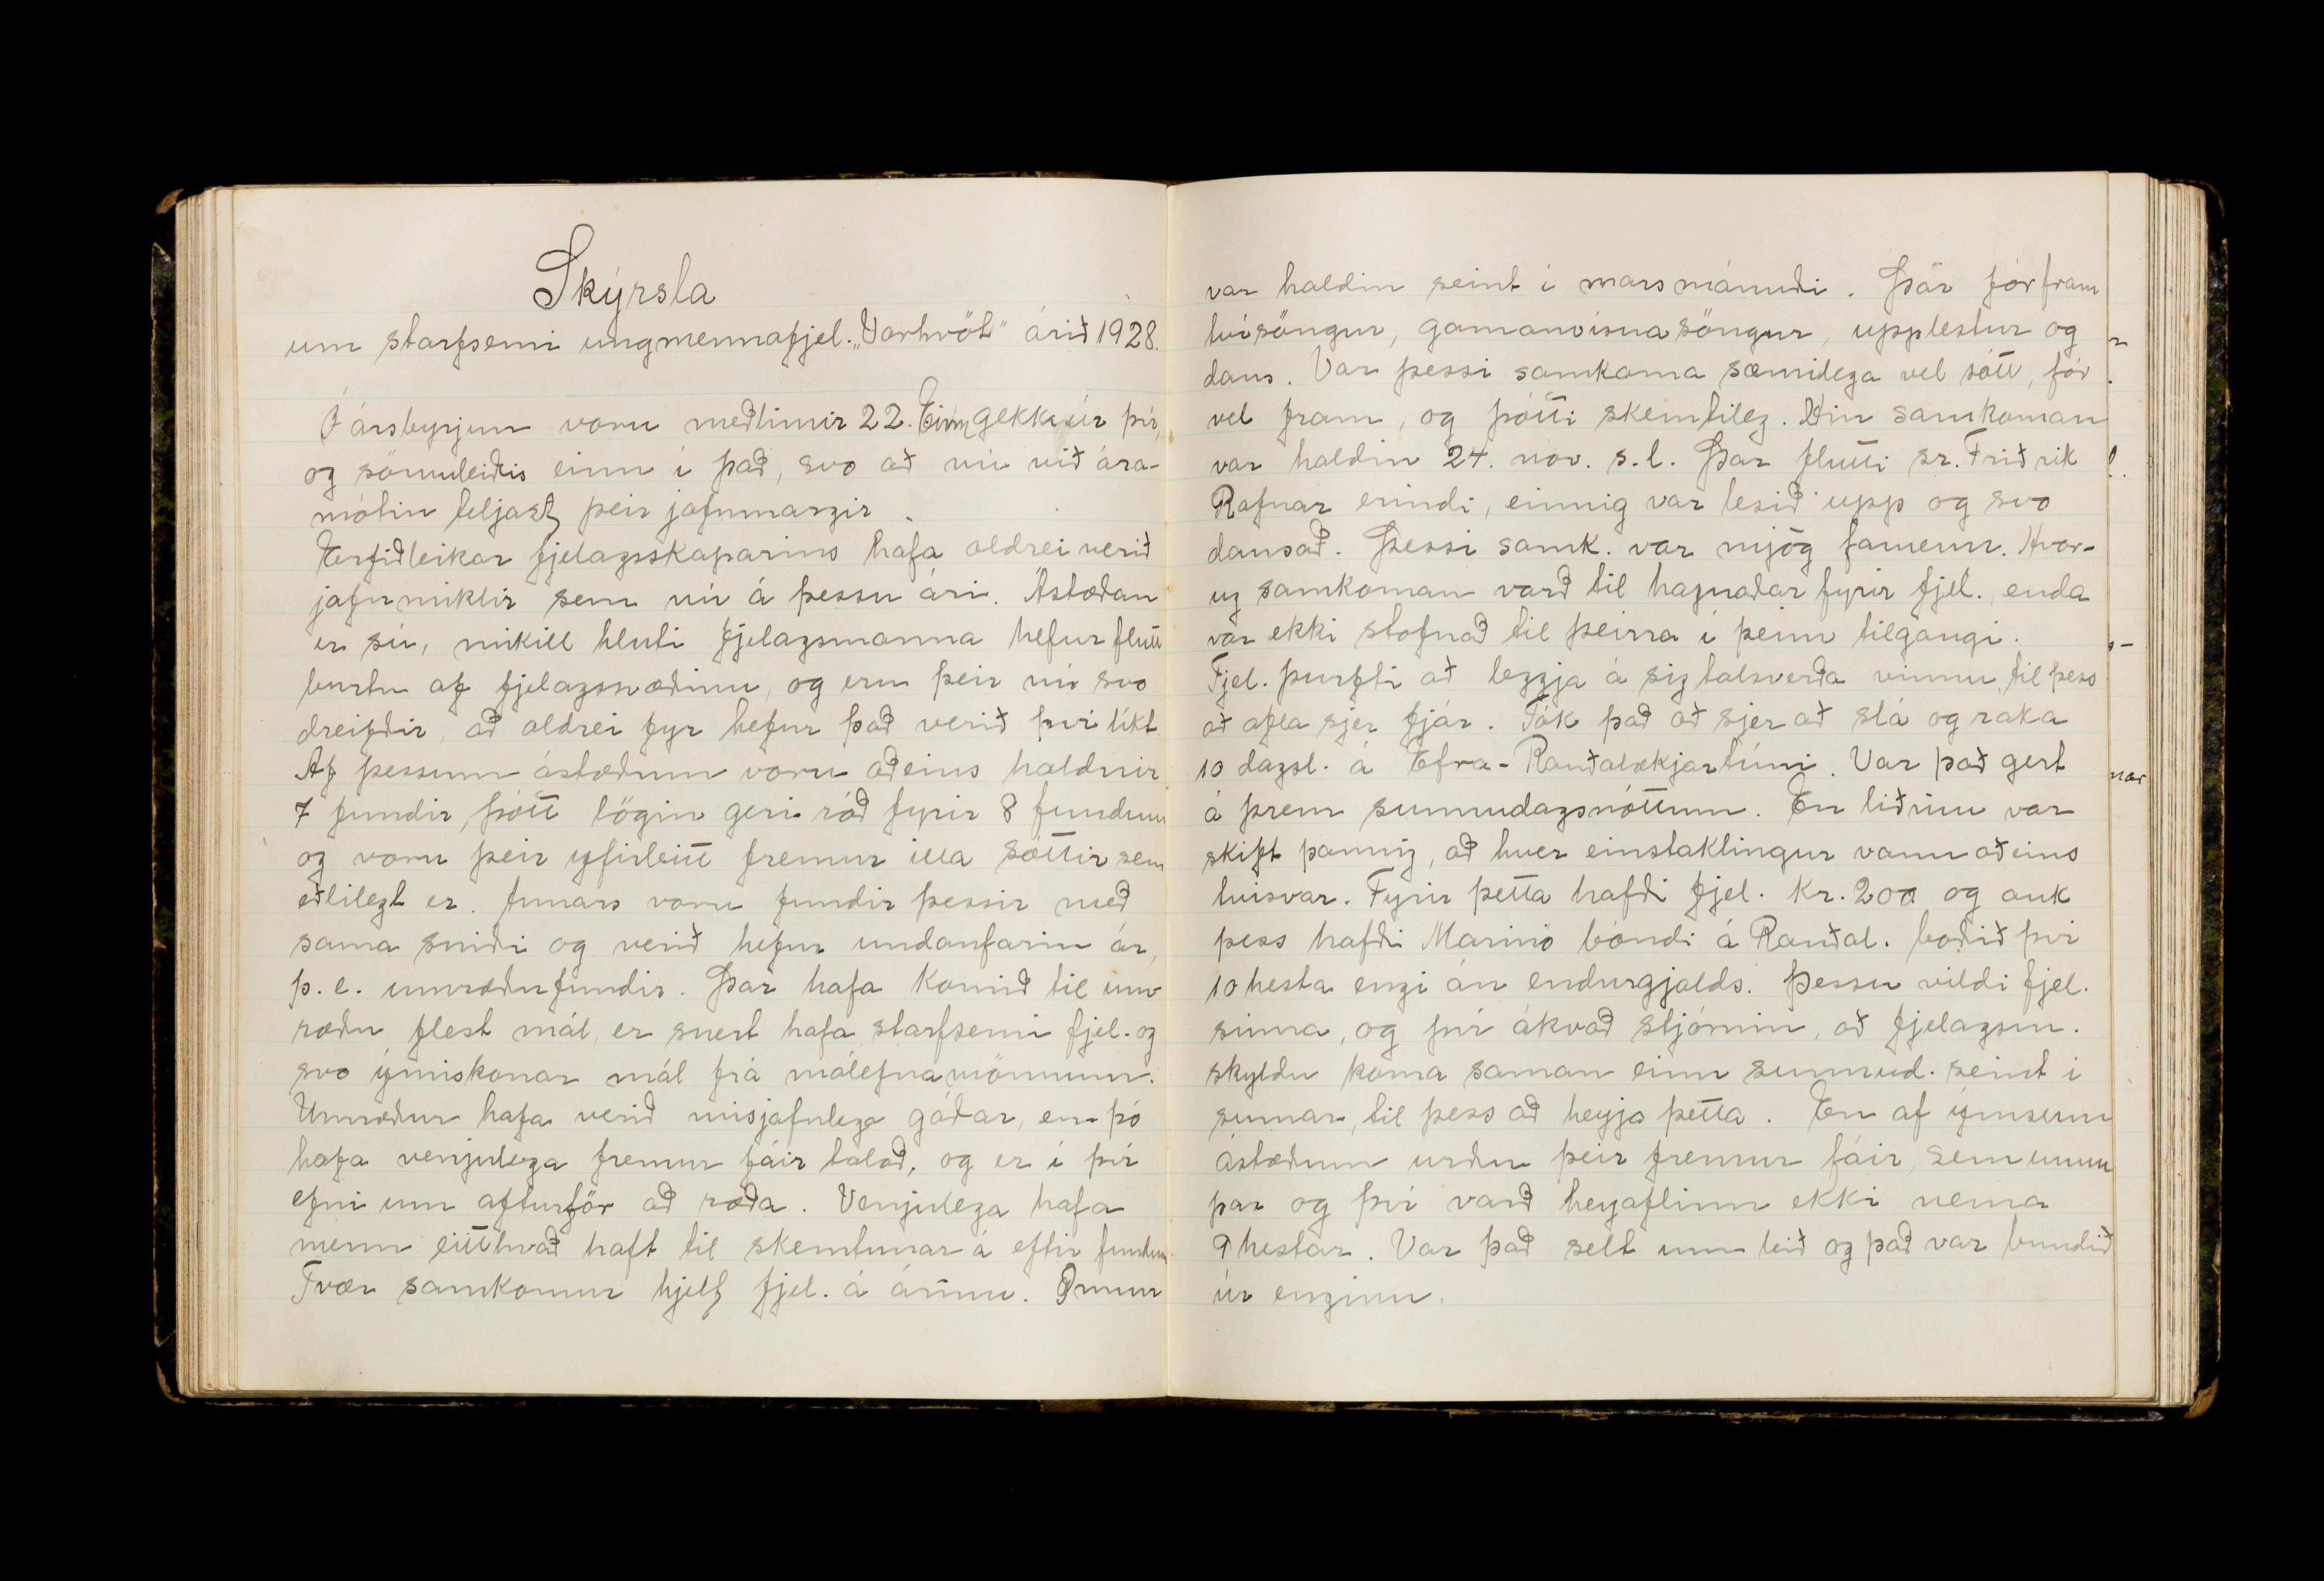 Skýrsla
um starfsemi ungmennafjel. „Vorhvöt" árið 1928.
Í ársbyrjun voru meðlimir 22. Einn gekk úr því,
og sömuleiðis einn í það, svo að nú við ára-
mótin teljast þeir jafnmargir.
Erfiðleikar fjelagsskaparins hafa aldrei verið
jafnmiklir sem nú á þessu ári. Ástæðan
er sú, mikill hluti fjelagsmanna hefur flutt
burtu af fjelagssvæðinu, og eru þeir nú svo
dreifðir, að aldrei fyr hefur það verið því líkt.
Af þessum ástæðum voru aðeins haldnir
7 fundir, þótt lögin geri ráð fyrir 8 fundum
og voru þeir yfirleitt fremur illa sóttir sem
eðlilegt er. Annars voru fundir þessir með
sama sniði og verið hefur undanfarin ár,
þ.e. umræðufundir. Þar hafa komið til um-
ræðu flest mál, er snert hafa starfsemi fjel. og
svo ýmiskonar mál frá málefnamönnum.
Umræður hafa verið misjafnlega góðar, en þó
hafa venjulega fremur fáir talað, og er í því
efni um afturför að ræða. Venjulega hafa
menn eitthvað haft til skemtunar á eftir fundum.
Tvær samkomur hjelt fjel. á árinu. Önnur
var haldin seint í marsmánuði. Þar fór fram
tvísöngur, gamanvísnasöngur, upplestur og
dans. Var þessi samkoma sæmilega vel sótt, fór
vel fram, og þótti skemtileg. Hin samkoman
var haldin 24. nov. s.l. Þar flutti sr. Friðrik
Rafnar erindi, einnig var lesið upp og svo
dansað. Þessi samk. var mjög fámenn. Hvor-
ug samkoman varð til hagnaðar fyrir fjel., enda
var ekki stofnað til þeirra í þeim tilgangi.
Fjel. þurfti að leggja á sig talsverða vinnu, til þess
að afla sjer fjár. Tók það að sjer að slá og raka
10 dagsl. á Efra-Rauðalækjartúni. Var það gert
á þrem sunnudagsnóttum. En liðinu var
skift þannig, að hver einstaklingur vann aðeins
tvisvar. Fyrir þetta hafði fjel. kr. 200 og auk
þess hafði Marinó bóndi á Rauðal. boðið því
10 hesta engi án endurgjalds. Þessu vildi fjel.
sinna, og því ákvað stjórnin, að fjelagsm.
skyldu koma saman einn sunnud. seint í
sumar, til þess að heyja þetta. En af ýmsum
ástæðum urðu þeir fremur fáir, sem unnu
þar og því varð heyaflinn ekki nema
9 hestar. Var það selt um leið og það var bundið
úr enginu.